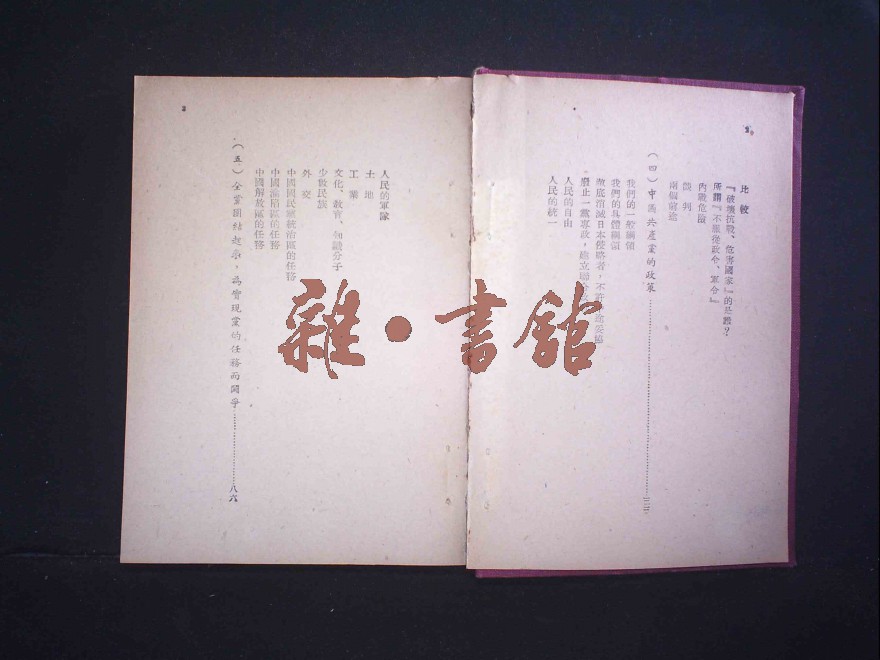 比較
『破壞抗戰、危害國家』的是誰？
所謂『不服從政令、軍令』
內戰危險
談判
兩個前途
（四）中國共產黨的政策
我們的一般綱領
我們的具體綱領
徹底消滅日本侵略者，不許中途妥協
廢止一黨專政，建立聯合
人民的自由
人民的統一
人民的軍隊
土地
工業
文化、教育、知識分子
少數民族
外交
中國國民黨統治區的任務
中國淪陷區的任務
中國解放區的任務
（五）全黨團結起來，為實現黨的任務而鬪爭……八六
雜•書館